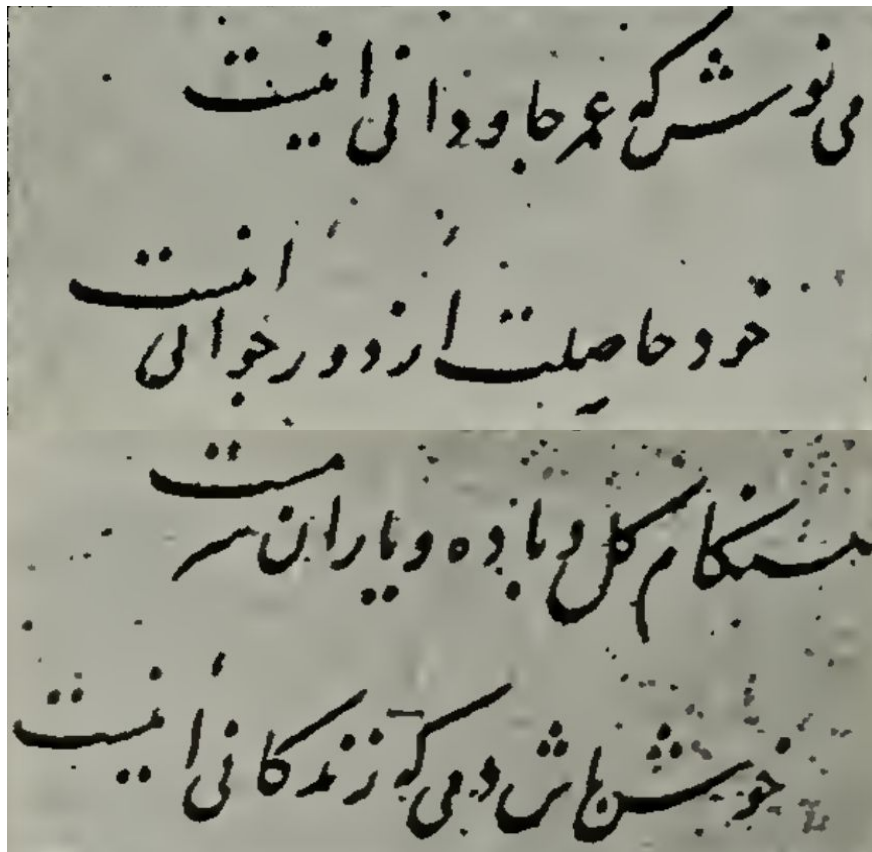 می نوش که عمر جاودانی اینست
خود حاصلت از دور جوانی اینست
هنگام کل و باده و یاران سرمست
خوش باش دمی که زندکانی اینست